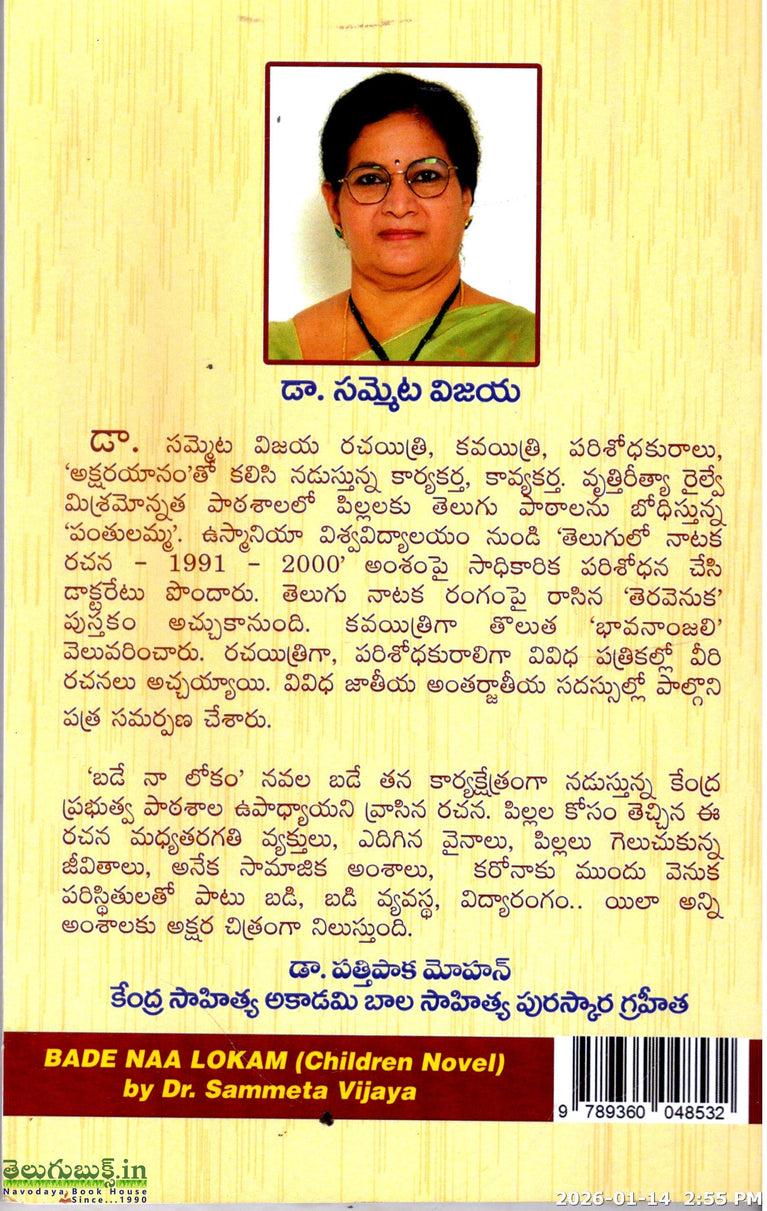 డా. సమ్మెట విజయ
డా. సమ్మెట విజయ రచయిత్రి, కవయిత్రి, పరిశోధకురాలు,
‘అక్షరయానం’తో కలిసి నడుస్తున్న కార్యకర్త, కావ్యకర్త. వృత్తిరీత్యా రైల్వే
మిశ్రమోన్నత పాఠశాలలో పిల్లలకు తెలుగు పాఠాలను బోధిస్తున్న
‘పంతులమ్మ’. ఉస్మానియా విశ్వవిద్యాలయం నుండి ‘తెలుగులో నాటక
రచన – 1991 – 2000’ అంశంపై సాధికారిక పరిశోధన చేసి
డాక్టరేటు పొందారు. తెలుగు నాటక రంగంపై రాసిన ‘తెరవెనుక’
పుస్తకం అచ్చుకానుంది. కవయిత్రిగా తొలుత ‘భావనాంజలి’
వెలువరించారు. రచయిత్రిగా, పరిశోధకురాలిగా వివిధ పత్రికల్లో వీరి
రచనలు అచ్చయ్యాయి. వివిధ జాతీయ అంతర్జాతీయ సదస్సుల్లో పాల్గొని
పత్ర సమర్పణ చేశారు.
‘బడే నా లోకం’ నవల బడే తన కార్యక్షేత్రంగా నడుస్తున్న కేంద్ర
ప్రభుత్వ పాఠశాల ఉపాధ్యాయని వ్రాసిన రచన. పిల్లల కోసం తెచ్చిన ఈ
రచన మధ్యతరగతి వ్యక్తులు, ఎదిగిన వైనాలు, పిల్లలు గెలుచుకున్న
జీవితాలు, అనేక సామాజిక అంశాలు, కరోనాకు ముందు వెనుక
పరిస్థితులతో పాటు బడి, బడి వ్యవస్థ, విద్యారంగం.. యిలా అన్ని
అంశాలకు అక్షర చిత్రంగా నిలుస్తుంది.
డా. పత్తిపాక మోహన్
కేంద్ర సాహిత్య అకాడమి బాల సాహిత్య పురస్కార గ్రహీత
BADE NAA LOKAM (Children Novel)
by Dr. Sammeta Vijaya
9 789360 048532
తెలుగుబుక్స్.in
Navodaya Book House
Since...1990
2026-01-14 2:55 PM